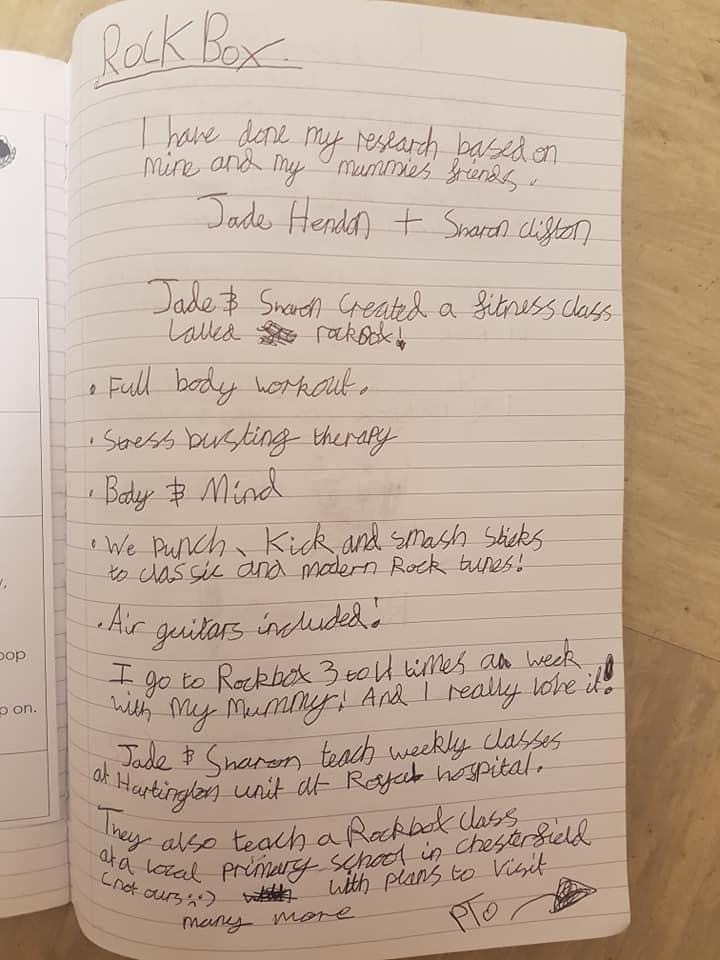 ROCK BOX.
I have done my research based on
mine and my mummies friends.
Jade Hendon + Sharon Clifton
Jade & Sharon Created a fitness class
called rockbox!
• Full body workout.
• Stress busting therapy
• Body & Mind
• We punch, Kick and smash sticks
to classic and modern Rock tunes!
• Air guitars included!
I go to Rockbox 3 to 4 times a week
with My Mummy! And I really love it!
Jade & Sharon teach weekly classes
at Hartington unit at Royal hospital.
They also teach a Rockbox class
at a local primary school in chesterfield
(not ours :) with plans to visit
many more
PTO
pop
p on.